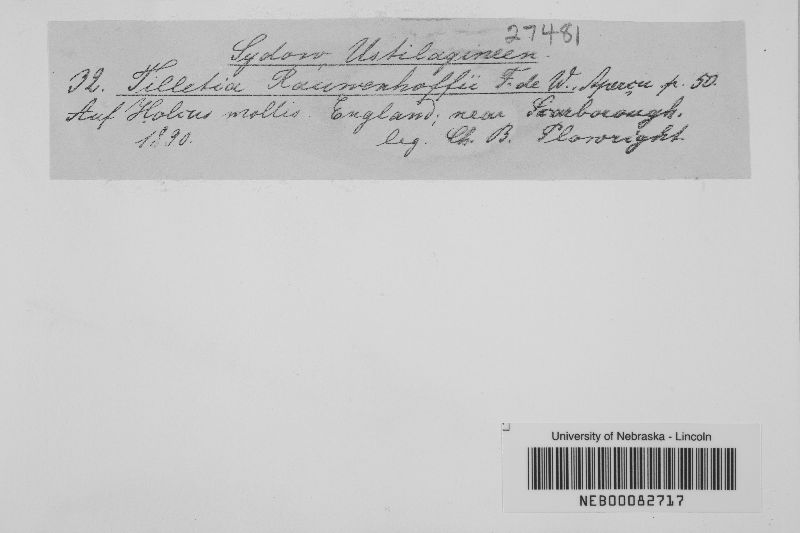 27481
Sydow, Ustilagineen.
32. Tilletia Rauwenhoffii F. de W. Aperçu p. 50.
Auf Holcus mollis. England; near Scarborough.
1890. leg. Ch. B. Plowright
University of Nebraska - Lincoln
NEB00082717